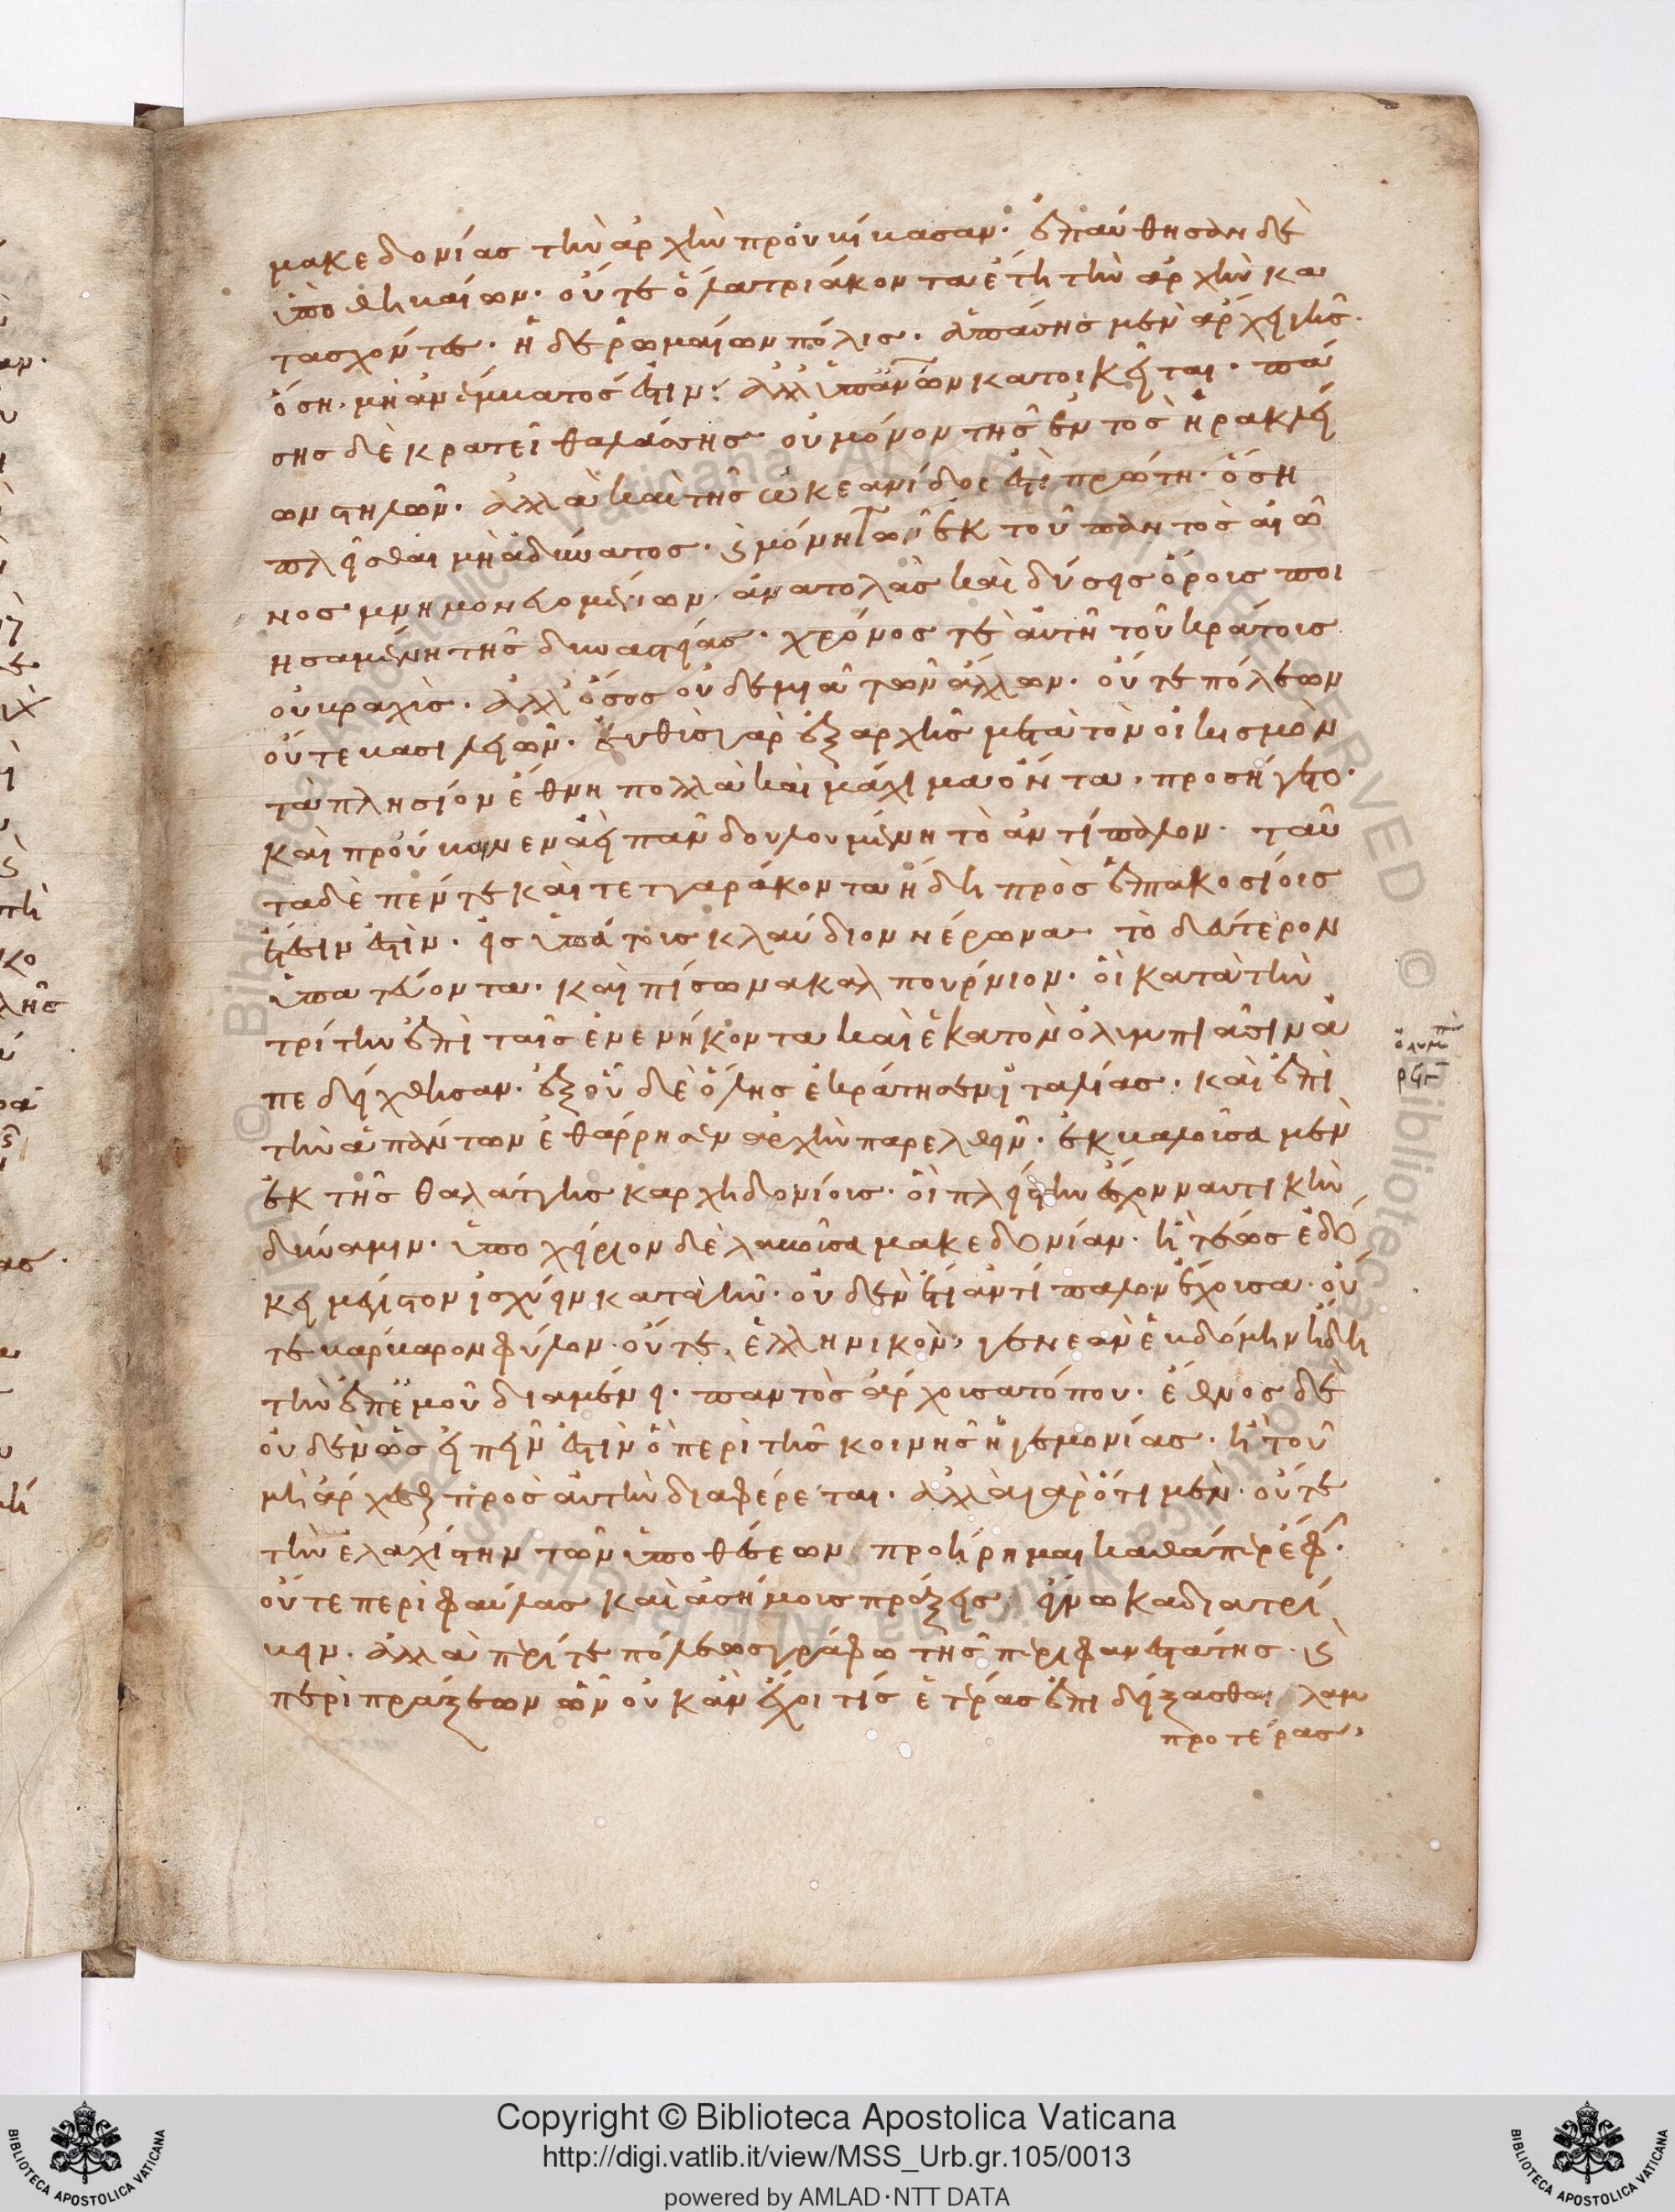 μακεδονίας τὴν ἀρχὴν προὔβίβασαν· ἐπαύθησαν δὲ
ὑπὸ θηβαίων· οὔτε ὅλα τριάκοντα ἔτη τὴν ἀρχὴν κα
τασχόντες· ἡ δὲ ῥωμαίων πόλις· ἁπάσης μὲν ἄρχει γῆς·
ὅση μὴ ἀνέμβατός ἐστιν· ἀλλ' ὑπ' ἀνθρώπων κατοικεῖται· πά
σης δὲ κρατεῖ θαλάσσης· οὐ μόνον τῆς ἐντὸς ἡρακλεί
ων στηλῶν· ἀλλὰ καὶ τῆς ὠκεανίδος ἐστὶ πρώτη· ὅση
πλεῖσθαι μὴ ἀδύνατος· καὶ μόνη τῶν ἐκ τοῦ παντὸς αἰῶ
νος μνημονευομένων· ἀνατολὰς καὶ δύσεις ὅροις ποι
ησαμένη τῆς δυναστείας· χρόνος τε αὐτῆ τοῦ κράτους
οὐ βραχὺς· ἀλλ' ὅσος οὐδεμιᾶ τῶν ἄλλων· οὔτε πόλεων
οὔτε βασιλειῶν· εὐθὺς γὰρ ἐξ ἀρχῆς μετὰ τὸν οἰκισμὸν
τὰ πλησίον ἔθνη πολλὰ καὶ μάχιμα ὄντα· προσήγετο·
καὶ προὔβαινεν ἀεὶ πᾶν δουλουμένη τὸ ἀντίπαλον· ταῦ
τα δὲ πέντε καὶ τετταράκοντα ἤδη πρὸς ἑπτακοσίοις
ἔτεσιν ἐστὶν· εἰς ὑπάτους κλαύδιον νέρωνα· τὸ δεύτερον
ὑπατεύοντα· καὶ πίσωνα καλπούρνιον· οἳ κατὰ τὴν
τρίτην ἐπὶ ταῖς ἐνενήκοντα καὶ ἑκατὸν ὀλυμπιάσιν ἀ
πεδείχθησαν· ἐξ οὗ δὲ ὅλης ἐκράτησεν ἰταλίας· καὶ ἐπὶ
τὴν ἁπάντων ἐθάρρησεν ἀρχὴν παρελθεῖν· ἐκβαλοῦσα μὲν
ἐκ τῆς θαλάττης καρχηδονίους· οἳ πλείστην ἔσχον ναυτικὴν
δύναμιν· ὑποχείριον δὲ λαβοῦσα μακεδονίαν· ἣ τέως ἐδό
κει μέγιστον ἰσχύειν κατὰ γῆν· οὐδὲν ἔτι ἀντίπαλον ἔχουσα· οὔ
τε βάρβαρον φῦλον· οὔτε ἑλληνικὸν· γενεὰν ἑβδόμην ἤδη
τὴν ἐπ' ἐμοῦ διαμένει· παντὸς ἄρχουσα τόπου· ἔθνος δὲ
οὐδὲν ὡς εἰπεῖν ἐστὶν ὃ περὶ τῆς κοινῆς ἡγεμονίας· ἢ τοῦ
μὴ ἄρχεσθαι πρὸς αὐτὴν διαφέρεται· ἀλλὰ γὰρ ὅτι μὲν· οὔτε
τὴν ἐλαχίστην τῶν ὑποθέσεων προῄρημαι καθάπερ ἔφην·
οὔτε περὶ φαύλας καὶ ἀσήμους πράξεις ἔγνωκα διατρί
βειν· ἀλλὰ περί τε πόλεως γράφω τῆς περιφανεστάτης· καὶ
περὶ πράξεων ὧν οὐκ ἂν ἔχοι τίς ἑτέρας ἐπιδείξασθαι λαμ
προτέρας·
ὀλυμπιὰς
ρϟγ
3
Copyright © Biblioteca Apostolica Vaticana
http://digi.vatlib.it/view/MSS_Urb.gr.105/0013
powered by AMLAD·NTT DATA